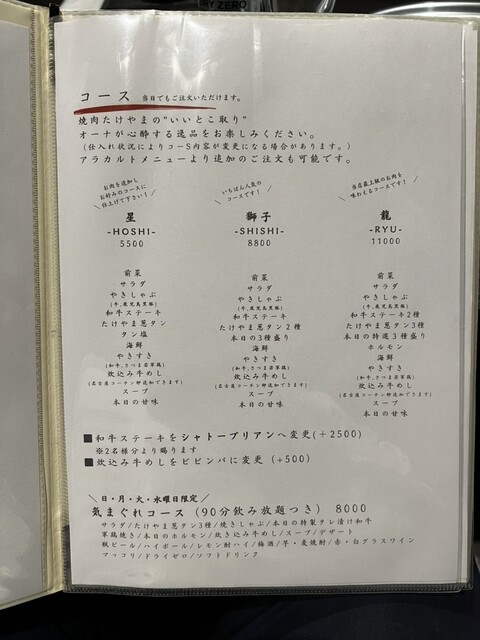 ZERO
コース 当日でもご注文いただけます。
焼肉たけやまの"いいとこ取り"
オーナが心酔する逸品をお楽しみください。
(仕入れ状況によりコーS内容が変更になる場合があります。)
アラカルトメニューより追加のご注文も可能です。
お肉を追加し
お好みのコースに
仕上げて下さい!
星
-HOSHI-
5500
前菜
サラダ
やきしゃぶ
(牛、鹿児島黒豚)
和牛ステーキ
たけやま葱タン
タン塩
海鮮
やきすき
(和牛、さつま若軍鶏)
炊込み牛めし
(名古屋コーチン卵追加できます)
スープ
本日の甘味
いちばん人気の
コースです!
獅子
-SHISHI-
8800
前菜
サラダ
やきしゃぶ
(牛、鹿児島黒豚)
和牛ステーキ
たけやま葱タン2種
本日の3種盛り
海鮮
やきすき
(和牛、さつま若軍鶏)
炊込み牛めし
(名古屋コーチン卵追加できます)
スープ
本日の甘味
当店最上級のお肉を
味わえるコースです!
龍
-RYU-
11000
前菜
サラダ
やきしゃぶ
(牛、鹿児島黒豚)
和牛ステーキ2種
たけやま葱タン3種
本日の特選3種盛り
ホルモン
海鮮
やきすき
(和牛、さつま若軍鶏)
炊込み牛めし
(名古屋コーチン卵追加できます)
スープ
本日の甘味
■和牛ステーキをシャトーブリアンへ変更(+2500)
※2名様分より賜ります
■炊込み牛めしをビビンバに変更(+500)
\日・月・火・水曜日限定/
気まぐれコース(90分飲み放題つき) 8000
サラダ/たけやま葱タン3種/焼きしゃぶ/本日の特製タレ漬け和牛
軍鶏焼き/本日のホルモン/炊き込み牛めし/スープ/デザート
瓶ビール/ハイボール/レモン酎ハイ/梅酒/芋・麦焼酎/赤・白グラスワイン
マッコリ/ドライゼロ/ソフトドリンク